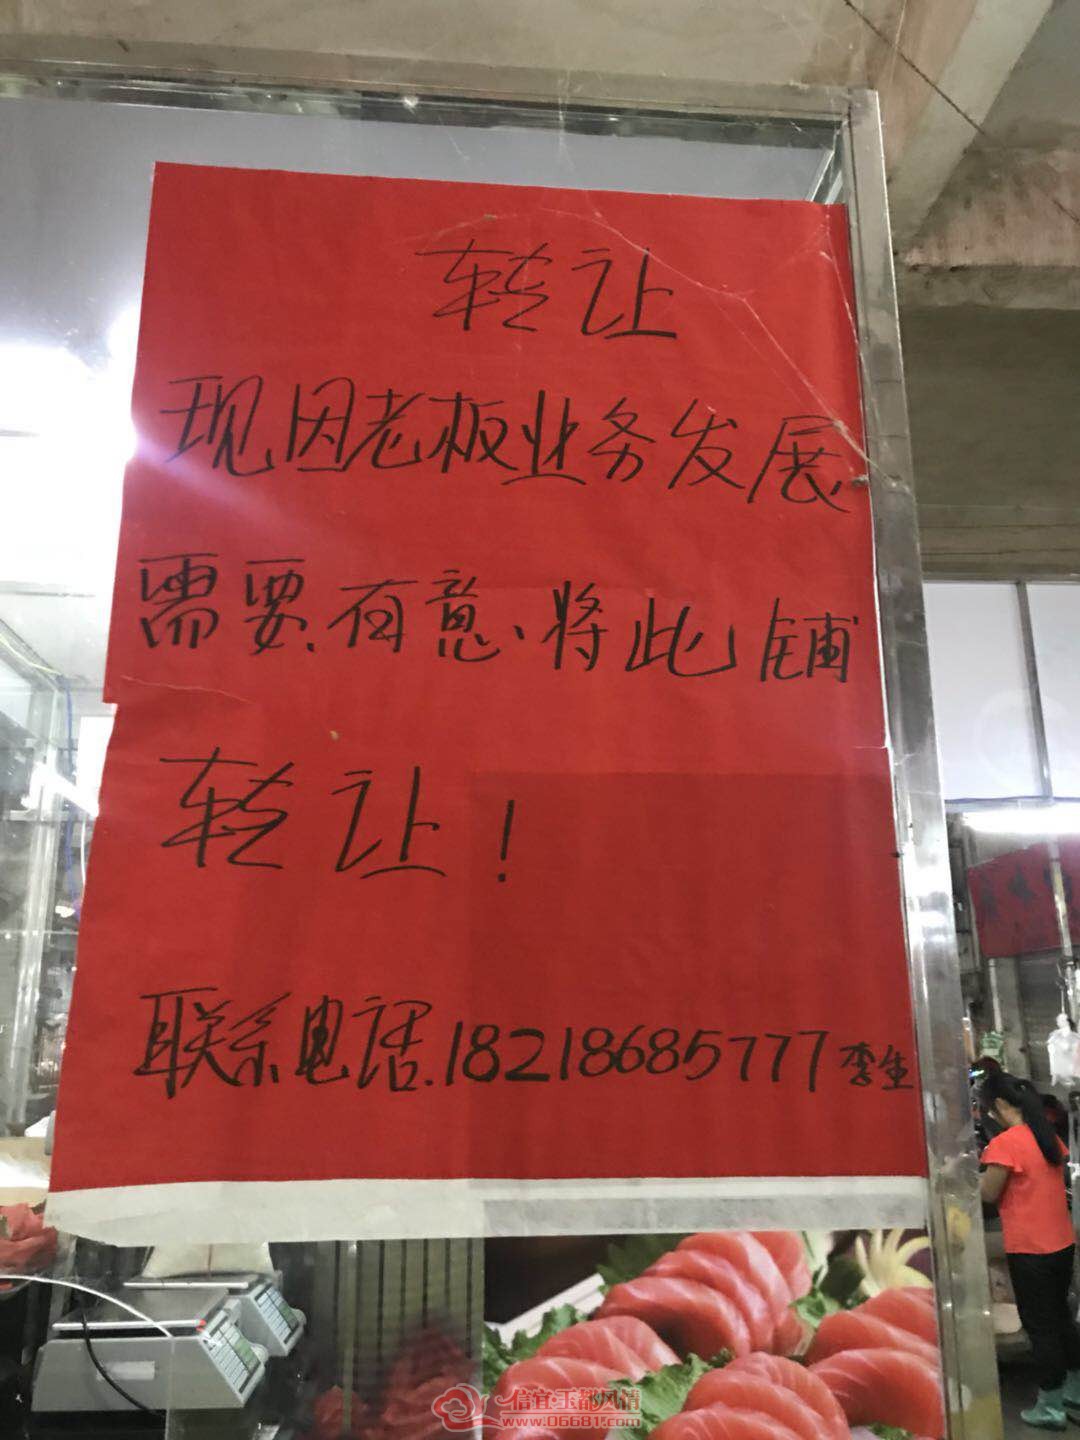 转让
现因老板业务发展
需要、有意、将此铺
转让!
联系电话.18218685777李生
信宜·玉都风情
www.06681.com